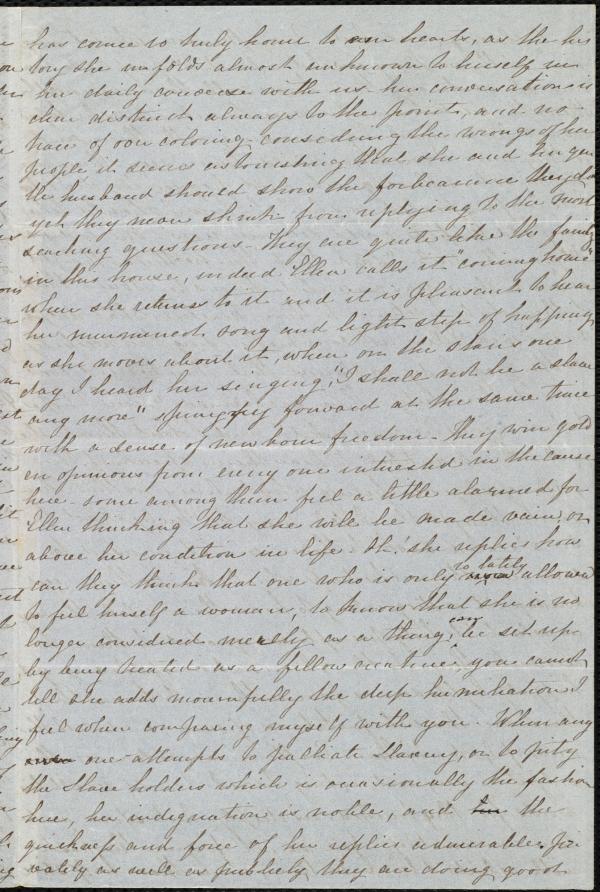 has come so truly home to our hearts, as the his
tory she unfolds almost unknown to herself in
her daily converse with us. her conversation is
clear distinct always to the point, and no
trace of over coloring. considering the wrongs of her
people it seems astonishing that she and her gen
tle husband should show the forbearance they do
yet they never shrink from replying to the most
searching questions. They are quite like the family
in this house, indeed Ellen calls it "coming home"
when she returns to it and it is pleasant to hear
her murmured song and light step of happiness
as she moves about it, when on the stairs one
day I heard her singing, "I shall not be a slave
any more" springing forward at the same time
with a sense of new born freedom - They win gold
en opinions from every one interested in the cause
here - some among them feel a little alarmed for
Ellen thinking that she will be made vain, or
above her condition in life. Oh! she replies how
can they think that one who is only so lately allowed
to feel herself a woman, to know that she is no
longer considered merely as a thing, can be set up
by being treated as a fellow creature, you cannot
tell she adds mournfully the deep humiliation I
feel when comparing myself with you. When any
one attempts to palliate Slavery, or to pity
the Slave holders which is occasionally the fashion
here, her indignation is noble, and the
quickness and force of her replies admirable. Pri
vately as well as publicly they are doing good